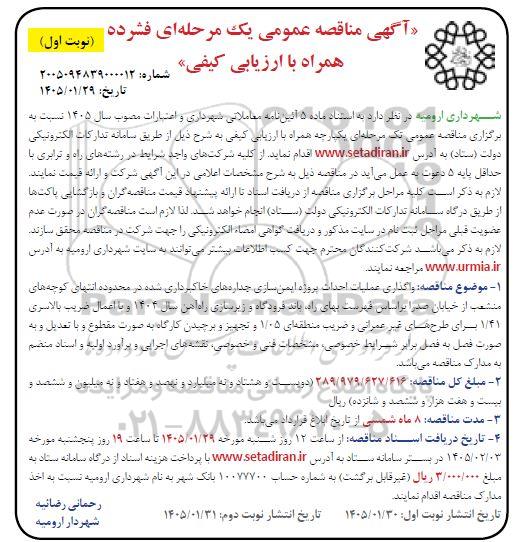 «آگهی مناقصه عمومی یک مرحله‌ای فشرده
همراه با ارزیابی کیفی»
(نوبت اول)
شماره: ۲۰۰۵۰۹۴۸۳۹۰۰۰۰۱۲
تاریخ: ۱۴۰۵/۰۱/۲۹
شهرداری ارومیه در نظر دارد به استناد ماده ۵ آئین‌نامه معاملاتی شهرداری و اعتبارات مصوب سال ۱۴۰۵ نسبت به
برگزاری مناقصه عمومی تک مرحله‌ای یکپارچه همراه با ارزیابی کیفی به شرح ذیل از طریق سامانه تدارکات الکترونیکی
دولت (ستاد) به آدرس www.setadiran.ir اقدام نماید. از کلیه شرکت‌های واجد شرایط در رشته‌های راه و ترابری با
حداقل پایه ۵ دعوت به عمل می‌آید در مناقصه ذیل به شرح مشخصات اعلامی در این آگهی شرکت و ارائه قیمت نمایند.
لازم به ذکر است کلیه مراحل برگزاری مناقصه از دریافت اسناد تا ارائه پیشنهاد قیمت مناقصه‌گران و بازگشایی پاکت‌ها
از طریق درگاه سامانه تدارکات الکترونیکی دولت (ستاد) انجام خواهد شد. لذا لازم است مناقصه‌گران در صورت عدم
عضویت قبلی مراحل ثبت نام در سایت مذکور و دریافت گواهی امضاء الکترونیکی را جهت شرکت در مناقصه محقق سازند.
لازم به ذکر می‌باشد شرکت‌کنندگان محترم جهت کسب اطلاعات بیشتر می‌توانند به سایت شهرداری ارومیه به آدرس
www.urmia.ir مراجعه نمایند.
۱- موضوع مناقصه: واگذاری عملیات احداث پروژه ایمن‌سازی جداره‌های خاکبرداری شده در محدوده انتهای کوچه‌های
منشعب از خیابان صدرا براساس فهرست بهای راه، باند فرودگاه و زیرسازی راه‌آهن سال ۱۴۰۴ و با اعمال ضریب بالاسری
۱/۴۱ برای طرح‌های غیر عمرانی و ضریب منطقه‌ای ۱/۰۵ و تجهیز و برچیدن کارگاه به صورت مقطوع و با تعدیل و به
صورت فصل به فصل برابر شرایط خصوصی، مشخصات فنی و خصوصی، نقشه‌های اجرایی و برآورد اولیه و اسناد منضم
به مدارک مناقصه می‌باشد.
۲- مبلغ کل مناقصه: ۲۸۹/۹۷۹/۶۲۷/۶۱۶ (دویست و هشتاد و نه میلیارد و نهصد و هفتاد و نه میلیون و ششصد و
بیست و هفت هزار و ششصد و شانزده) ریال
۳- مدت مناقصه: ۸ ماه شمسی از تاریخ ابلاغ قرارداد می‌باشد.
۴- تاریخ دریافت اسناد مناقصه: از ساعت ۱۲ روز شنبه مورخه ۱۴۰۵/۰۱/۲۹ تا ساعت ۱۹ روز پنجشنبه مورخه
۱۴۰۵/۰۲/۰۳ در بستر سامانه ستاد به آدرس www.setadiran.ir با پرداخت هزینه اسناد از درگاه سامانه ستاد به
مبلغ ۳/۰۰۰/۰۰۰ ریال (غیرقابل برگشت) به شماره حساب ۱۰۰۷۷۷۰۰ بانک شهر به نام شهرداری ارومیه نسبت به اخذ
مدارک مناقصه اقدام نمایند.
تاریخ انتشار نوبت اول: ۱۴۰۵/۰۱/۳۰ تاریخ انتشار نوبت دوم: ۱۴۰۵/۰۱/۳۱
رحمانی رضائیه
شهردار ارومیه